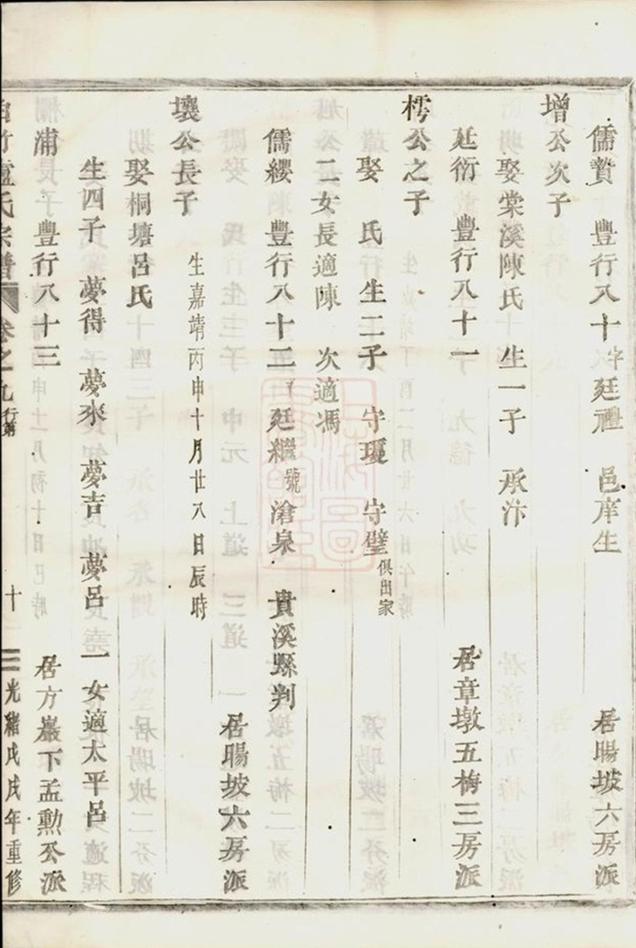 儒贄 豐行八十 字廷禮 邑庠生 居暘坡六房派
增公次子
娶棠溪陳氏 生一子 承汴
廷衍 豐行八十一 居章墩五梅三房派
樗公之子
娶 氏 生二子 守瓊 守璧 俱出家
二女長適陳 次適馮
儒纓 豐行八十二 廷繼 號滄泉 貴溪縣判 居暘坡六房派
壤公長子 生嘉靖丙申十月廿八日辰時
娶桐塘呂氏
生四子 夢得 夢來 夢吉 夢呂 一女適太平呂
浦 豐行八十三 居方巖下孟勲公派
盧氏宗譜 卷之九 行第 十 光緒戊戌年重修